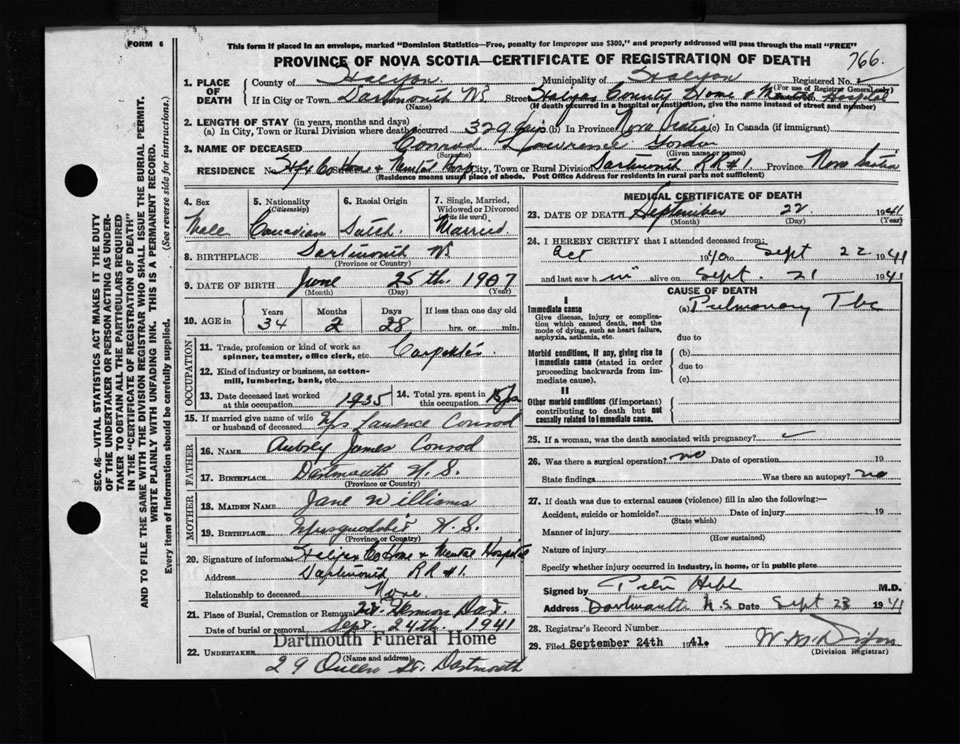 FORM 6
This form if placed in an envelope, marked "Dominion Statistics—Free, penalty for improper use $300," and properly addressed will pass through the mail "FREE"
PROVINCE OF NOVA SCOTIA—CERTIFICATE OF REGISTRATION OF DEATH
766.
1. PLACE OF DEATH
County of Halifax. Municipality of Halifax Registered No.
(For use of Registrar General only)
If in City or Town Dartmouth N.S. Street Halifax County Home & Mental Hospital
(Name) (If death occurred in a hospital or institution, give the name instead of street and number)
2. LENGTH OF STAY (in years, months and days)
(a) In City, Town or Rural Division where death occurred 329 days (b) In Province Nova Scotia (c) In Canada (if immigrant)
3. NAME OF DECEASED Conrod Lawrence Gordon
(Surname) (Given name or names)
RESIDENCE No. Hfx Co Home & Mental Hosp City, Town or Rural Division Dartmouth RR#1. Province Nova Scotia
(Residence means usual place of abode. Post Office Address for residents in rural parts not sufficient)
4. Sex Male
5. Nationality (Citizenship) Canadian
6. Racial Origin Dutch.
7. Single, Married, Widowed or Divorced (Write the word) Married.
8. BIRTHPLACE Dartmouth N.S.
(Province or Country)
9. DATE OF BIRTH June 25th. 1907
(Month) (Day) (Year)
10. AGE in Years 34 Months 2 Days 28 If less than one day old hrs. or min.
OCCUPATION
11. Trade, profession or kind of work as spinner, teamster, office clerk, etc. Carpenter.
12. Kind of industry or business, as cotton-mill, lumbering, bank, etc.
13. Date deceased last worked at this occupation 1935
14. Total yrs. spent in this occupation 15 yrs
15. If married give name of wife or husband of deceased Mrs Laurence Conrod
FATHER
16. NAME Aubrey James Conrod
17. BIRTHPLACE Dartmouth N.S.
(Province or Country)
MOTHER
18. MAIDEN NAME Jane Williams
19. BIRTHPLACE Musquodoboit N.S.
(Province or Country)
20. Signature of informant Halifax Co Home & Mental Hospital
Address Dartmouth RR#1.
Relationship to deceased None.
21. Place of Burial, Cremation or Removal Mt. Hermon Dart.
Date of burial or removal Sept. 24th. 1941
Dartmouth Funeral Home
22. UNDERTAKER
(Name and address)
29 Queen St. Dartmouth
MEDICAL CERTIFICATE OF DEATH
23. DATE OF DEATH September 22. 1941
24. I HEREBY CERTIFY that I attended deceased from:
Oct 1940 to Sept 22 1941
and last saw h im alive on Sept. 21 1941
CAUSE OF DEATH
I
Immediate cause (a) Pulmonary Tbc
Give disease, injury or complication which caused death, not the mode of dying, such as heart failure, asphyxia, asthenia, etc.
due to
Morbid conditions, if any, giving rise to immediate cause (stated in order proceeding backwards from immediate cause).
(b)
due to
(c)
II
Other morbid conditions (if important) contributing to death but not causally related to immediate cause.
25. If a woman, was the death associated with pregnancy?
26. Was there a surgical operation? no Date of operation 19
State findings Was there an autopsy? no
27. If death was due to external causes (violence) fill in also the following:—
Accident, suicide or homicide? Date of injury 19
(State which)
Manner of injury
(How sustained)
Nature of injury
Specify whether injury occurred in industry, in home, or in public place
Signed by M.D.
Address Dartmouth N.S. Date Sept 23 1941
28. Registrar's Record Number
29. Filed September 24th 1941.
(Division Registrar)
SEC. 46—VITAL STATISTICS ACT MAKES IT THE DUTY
OF THE UNDERTAKER OR PERSON ACTING AS UNDERTAKER TO OBTAIN ALL THE PARTICULARS REQUIRED
IN THE "CERTIFICATE OF REGISTRATION OF DEATH"
AND TO FILE THE SAME WITH THE DIVISION REGISTRAR WHO SHALL ISSUE THE BURIAL PERMIT.
WRITE PLAINLY WITH UNFADING INK. THIS IS A PERMANENT RECORD.
Every item of information should be carefully supplied. (See reverse side for instructions.)